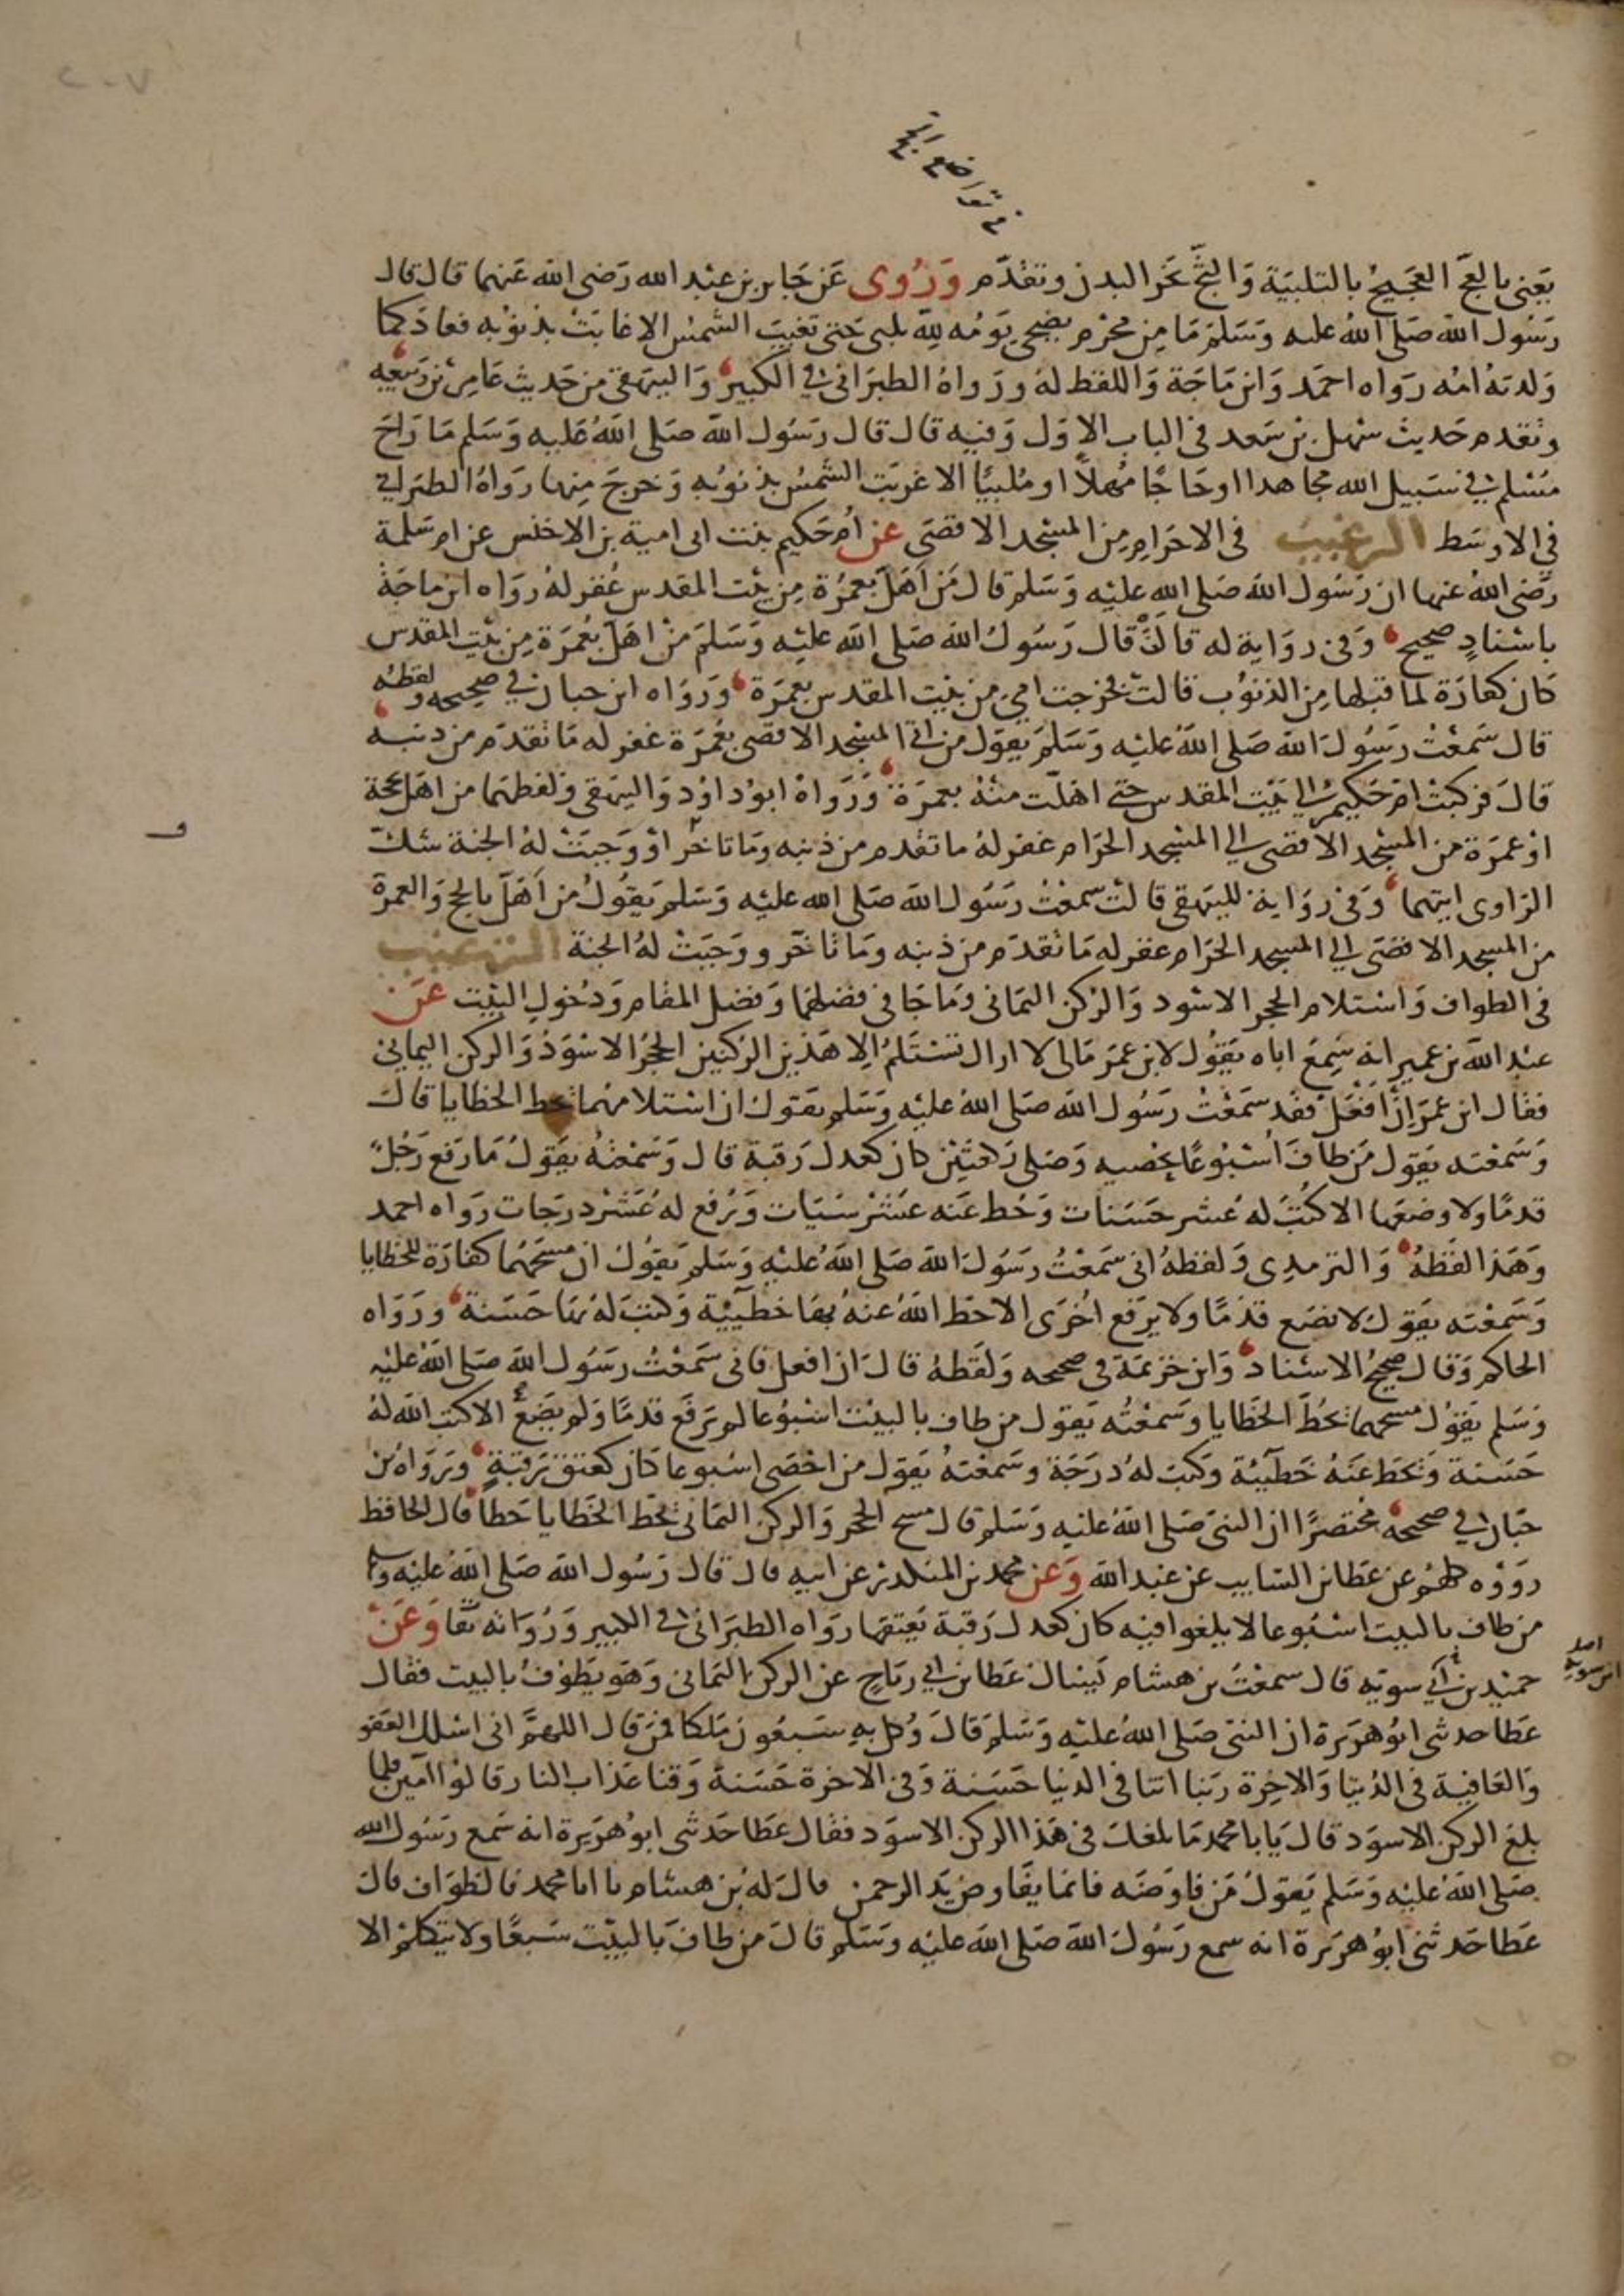 يعنى بالعج العجيج بالتلبية والثج نحر البدن وتقدم وروى عن جابر بن عبد الله رضى الله عنهما قال قال
رسول الله صلى الله عليه وسلم ما من محرم يضحى يومه لله يلبى حتى تغيب الشمس الا غابت بذنوبه فعاد كما
ولدته امه رواه احمد وابن ماجة واللفظ له ورواه الطبرانى فى الكبير والبيهقى من حديث عامر بن ربيعه
وتقدم حديث سهل بن سعد فى الباب الاول وفيه قال قال رسول الله صلى الله عليه وسلم ما راح
مسلم فى سبيل الله مجاهدا او حاجا مهلا او ملبيا الا غربت الشمس بذنوبه وخرج منها رواه الطبرانى
فى الاوسط الترغيب فى الاحرام من المسجد الاقصى عن ام حكيم بنت ابى امية بن الاخنس عن ام سلمة
رضى الله عنها ان رسول الله صلى الله عليه وسلم قال من اهل بعمرة من بيت المقدس غفر له رواه ابن ماجة
باسناد صحيح وفى رواية له قالت قال رسول الله صلى الله عليه وسلم من اهل بعمرة من بيت المقدس
كان كفارة لما قبلها من الذنوب قالت فخرجت امى من بيت المقدس بعمرة ورواه ابن حبان فى صحيحه ولفظه
قال سمعت رسول الله صلى الله عليه وسلم يقول من اتى المسجد الاقصى بعمرة غفر له ما تقدم من ذنبه
قال فركبت ام حكيم الى بيت المقدس حتى اهلت منه بعمرة ورواه ابو داود والبيهقى ولفظهما من اهل بحجة
او عمرة من المسجد الاقصى الى المسجد الحرام غفر له ما تقدم من ذنبه وما تاخر او وجبت له الجنة شك
الراوى ايتهما وفى رواية للبيهقى قالت سمعت رسول الله صلى الله عليه وسلم يقول من اهل بالحج والعمرة
من المسجد الاقصى الى المسجد الحرام غفر له ما تقدم من ذنبه وما تاخر ووجبت له الجنة الترغيب
فى الطواف واستلام الحجر الاسود والركن اليمانى وما جا فى فضلهما وفضل المقام ودخول البيت عن
عبد الله بن عمير انه سمع اباه يقول لابن عمر مالى لا اراك تستلم الا هذين الركنين الحجر الاسود والركن اليمانى
فقال ابن عمر ان افعل فقد سمعت رسول الله صلى الله عليه وسلم يقول ان استلامهما يحط الخطايا قال
وسمعته يقول من طاف اسبوعا يحصيه وصلى ركعتين كان كعدل رقبة قال وسمعته يقول ما رفع رجل
قدما ولا وضعها الا كتب له عشر حسنات وحط عنه عشر سيات ورفع له عشر درجات رواه احمد
وهذا لفظه والترمذى ولفظه انى سمعت رسول الله صلى الله عليه وسلم يقول ان مسحهما كفارة للخطايا
وسمعته يقول لا يضع قدما ولا يرفع اخرى الا حط الله عنه بها خطيئة وكتب له بها حسنة ورواه
الحاكم وقال صحيح الاسناد وابن خزيمة فى صحيحه ولفظه قال ان افعل فانى سمعت رسول الله صلى الله عليه
وسلم يقول مسحهما يحط الخطايا وسمعته يقول من طاف بالبيت اسبوعا لم يرفع قدما ولم يضع الا كتب الله له
حسنة ويحط عنه خطيئة وكتب له درجة وسمعته يقول من احصى اسبوعا كان كعتق رقبة ورواه بن
حبان فى صحيحه مختصرا ان النبى صلى الله عليه وسلم قال مسح الحجر والركن اليمانى يحط الخطايا حطا قال الحافظ
رووه كلهم عن عطا بن السايب عن عبد الله وعن محمد بن المنكدر عن ابيه قال قال رسول الله صلى الله عليه وسلم
من طاف بالبيت اسبوعا لا يلغوا فيه كان كعدل رقبة يعتقها رواه الطبرانى فى الكبير ورواته ثقا وعن
حميد بن ابى سوية قال سمعت بن هشام يسال عطا بن ابى رباح عن الركن اليمانى وهو يطوف بالبيت فقال
عطا حدثى ابو هريرة ان النبى صلى الله عليه وسلم قال وكل به سبعون ملكا فمن قال اللهم انى اسلك العفو
والعافية فى الدنيا والاخرة ربنا اتنا فى الدنيا حسنة وفى الاخرة حسنة وقنا عذاب النار قالوا آمين فلما
بلغ الركن الاسود قال يابا محمد ما بلغك فى هذا الركن الاسود فقال عطا حدثى ابو هريرة انه سمع رسول الله
صلى الله عليه وسلم يقول من فاوضه فانما يفاوض يد الرحمن قال له بن هشام يا ابا محمد فالطواف قال
عطا حدثنى ابو هريرة انه سمع رسول الله صلى الله عليه وسلم قال من طاف بالبيت سبعا ولا يتكلم الا